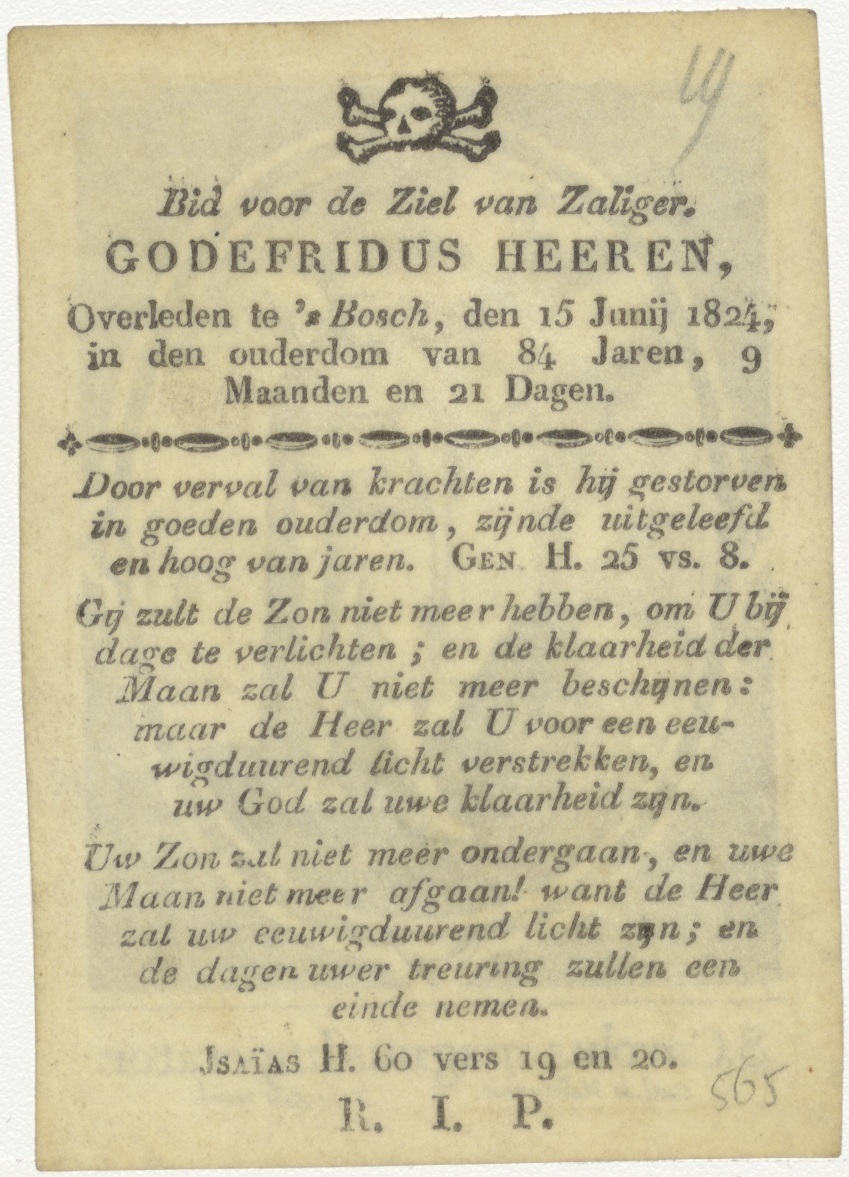 19
Bid voor de Ziel van Zaliger.
GODEFRIDUS HEEREN,
Overleden te 's Bosch, den 15 Junij 1824,
in den ouderdom van 84 Jaren, 9
Maanden en 21 Dagen.
Door verval van krachten is hij gestorven
in goeden ouderdom, zijnde uitgeleefd
en hoog van jaren. GEN H. 25 vs. 8.
Gij zult de Zon niet meer hebben, om U bij
dage te verlichten; en de klaarheid der
Maan zal U niet meer beschijnen:
maar de Heer zal U voor een eeu-
wigduurend licht verstrekken, en
uw God zal uwe klaarheid zijn.
Uw Zon zal niet meer ondergaan, en uwe
Maan niet meer afgaan! want de Heer
zal uw eeuwigduurend licht zijn; en
de dagen uwer treuring zullen een
einde nemen.
JSAÏAS H. 60 vers 19 en 20.
R. I. P.
565